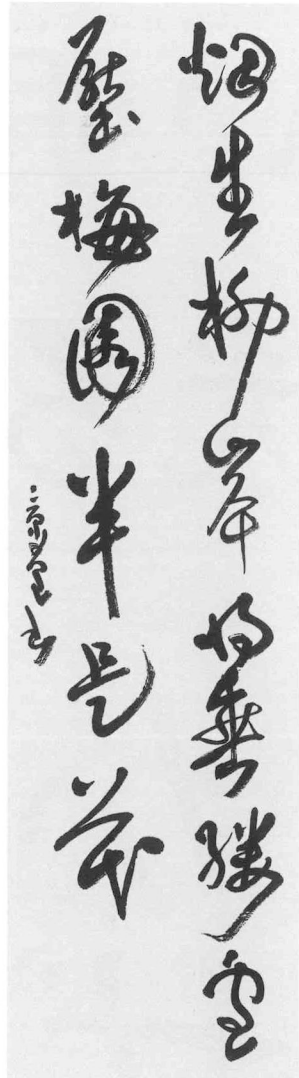 烟生柳岸将垂缕雪
压梅园半是花